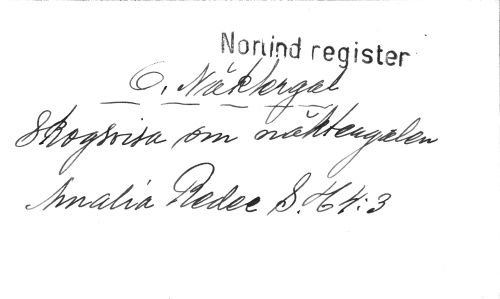 Norlind register
C, Näktergal
Skogsvisa om näktergalen
Amalia Redec S. H 4:3